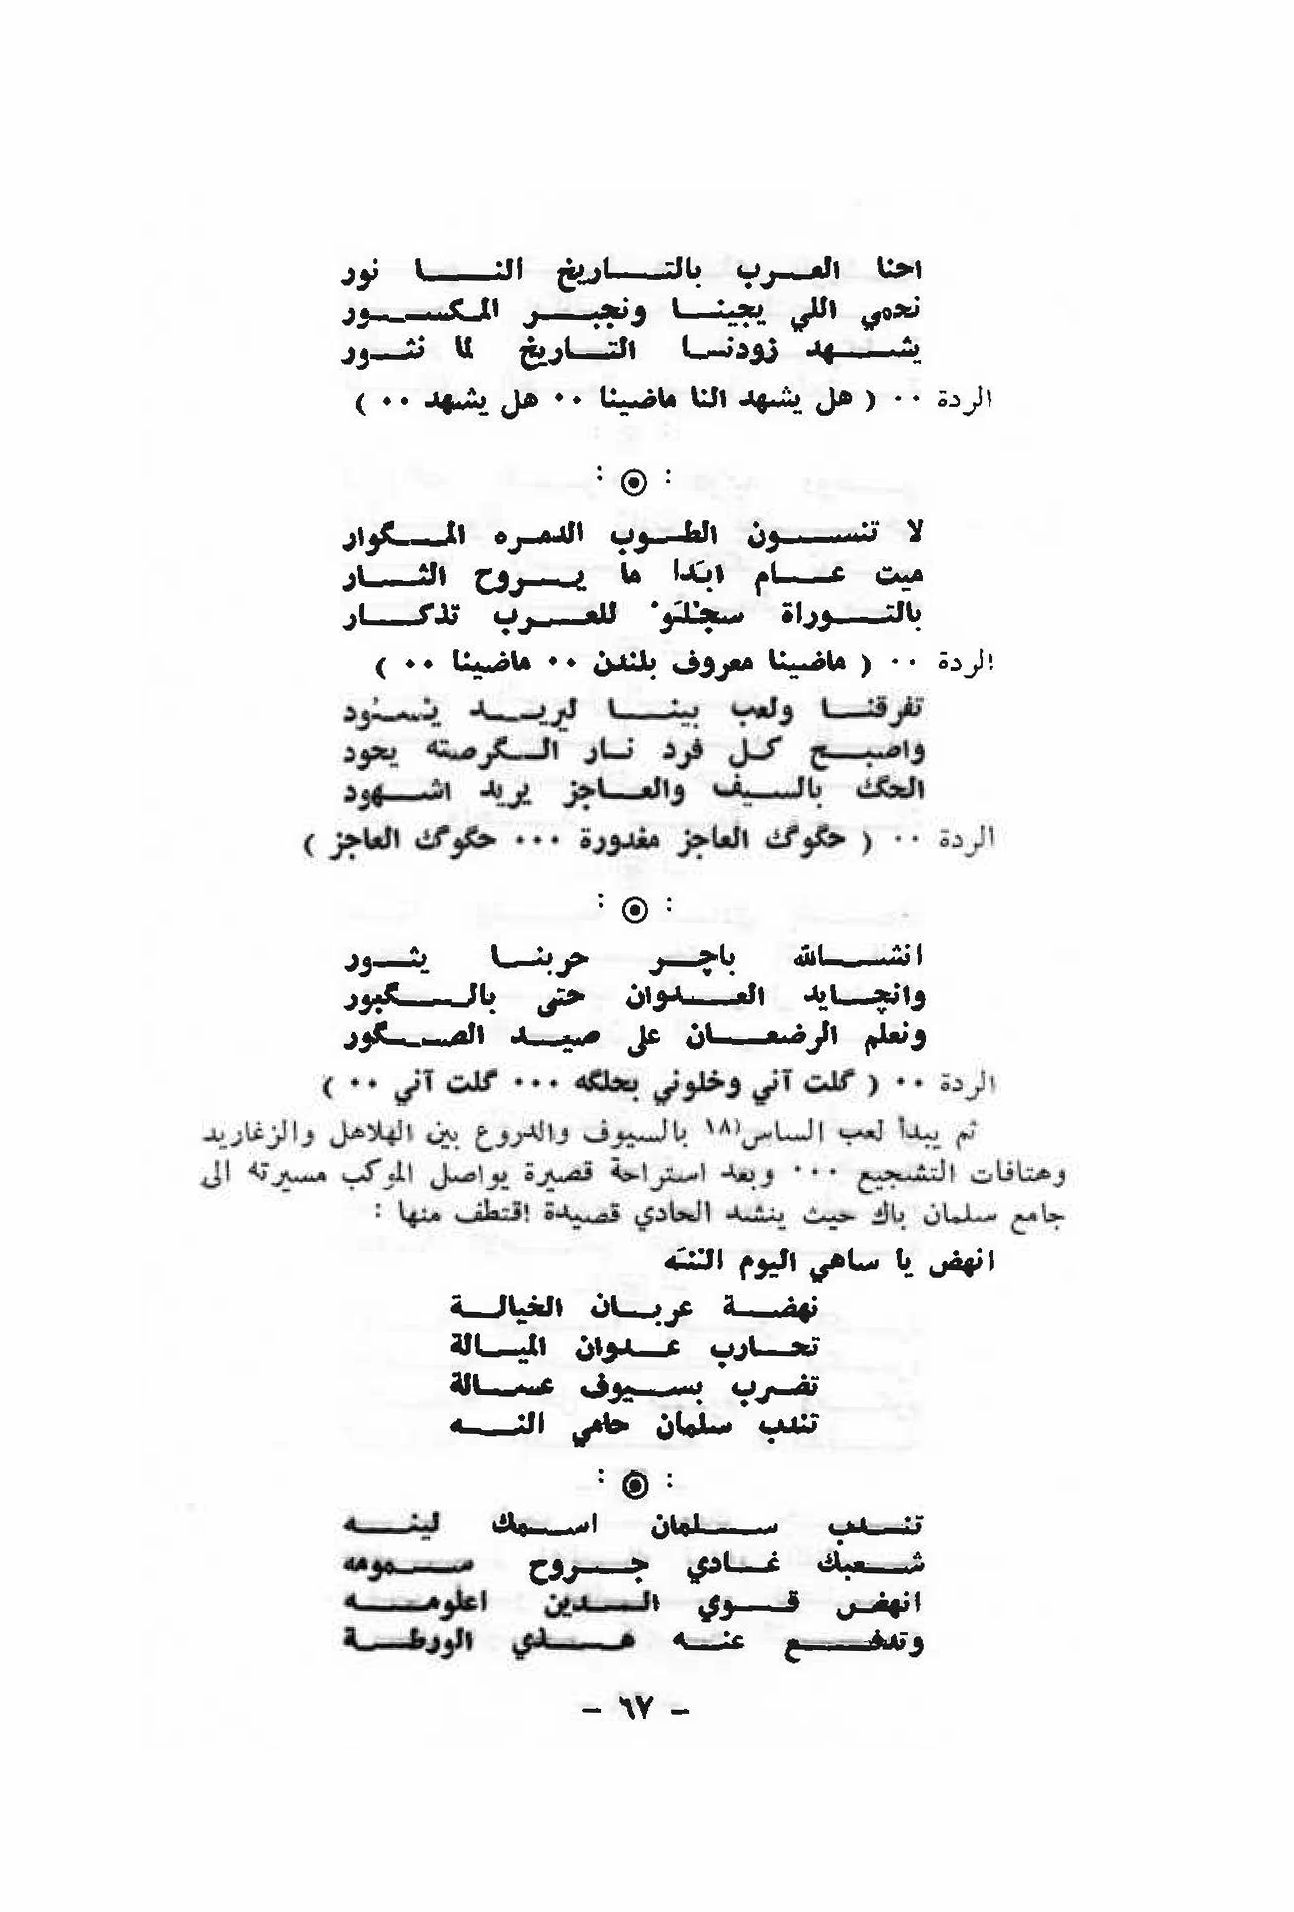 احنا العرب بالتاريخ النا نور
نحمي اللي يجينا ونجبر المكسور
يشهد زودنا التاريخ لما نثور
الردة ٠٠ ( هل يشهد النا ماضينا ٠٠ هل يشهد ٠٠ )
: ◉ :
لا تنسون الطوب الدمره المگوار
ميت عام ابَدا ما يروح الثار
بالتوراة سجْلَوْ للعرب تذكار
الردة ٠٠ ( ماضينا معروف بلندن ٠٠ ماضينا ٠٠ )
تفرقنا ولعب بينا ليريد يسود
واصبح كل فرد نار الگرصته يحود
الحگ بالسيف والعاجز يريد اشهود
الردة ٠٠ ( حگوگ العاجز مغدورة ٠٠٠ حگوگ العاجز )
: ◉ :
انشالله باچر حربنا يثور
وانچايد العدوان حتى بالگبور
ونعلم الرضعان على صيد الصگور
الردة ٠٠ ( گلت آني وخلوني بحلگه ٠٠٠ گلت آني ٠٠ )
ثم يبدأ لعب الساس(١٨ بالسيوف والدروع بين الهلاهل والزغاريد
وهتافات التشجيع ٠٠٠ وبعد استراحة قصيرة يواصل الموكب مسيرته الى
جامع سلمان باك حيث ينشد الحادي قصيدة اقتطف منها :
انهض يا ساهي اليوم النَنَه
نهضة عربان الخيالة
تحارب عدوان الميالة
تضرب بسيوف عسالة
تندب سلمان حامي النه
: ◉ :
تندب سلمان اسمك لينه
شعبك غادي جروح سمومه
انهض قوي الدين اعلومه
وتدفع عنه هذي الورطة
- ٦٧ -